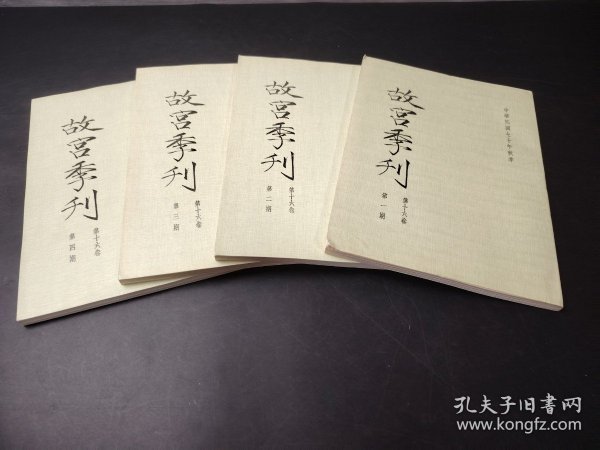 故宮季刊
第十六卷
第四期
故宮季刊
第十六卷
第三期
故宮季刊
第十六卷
第二期
故宮季刊
第十六卷
第一期
中華民國七十年秋季
孔夫子旧書网
www.kongfz.com